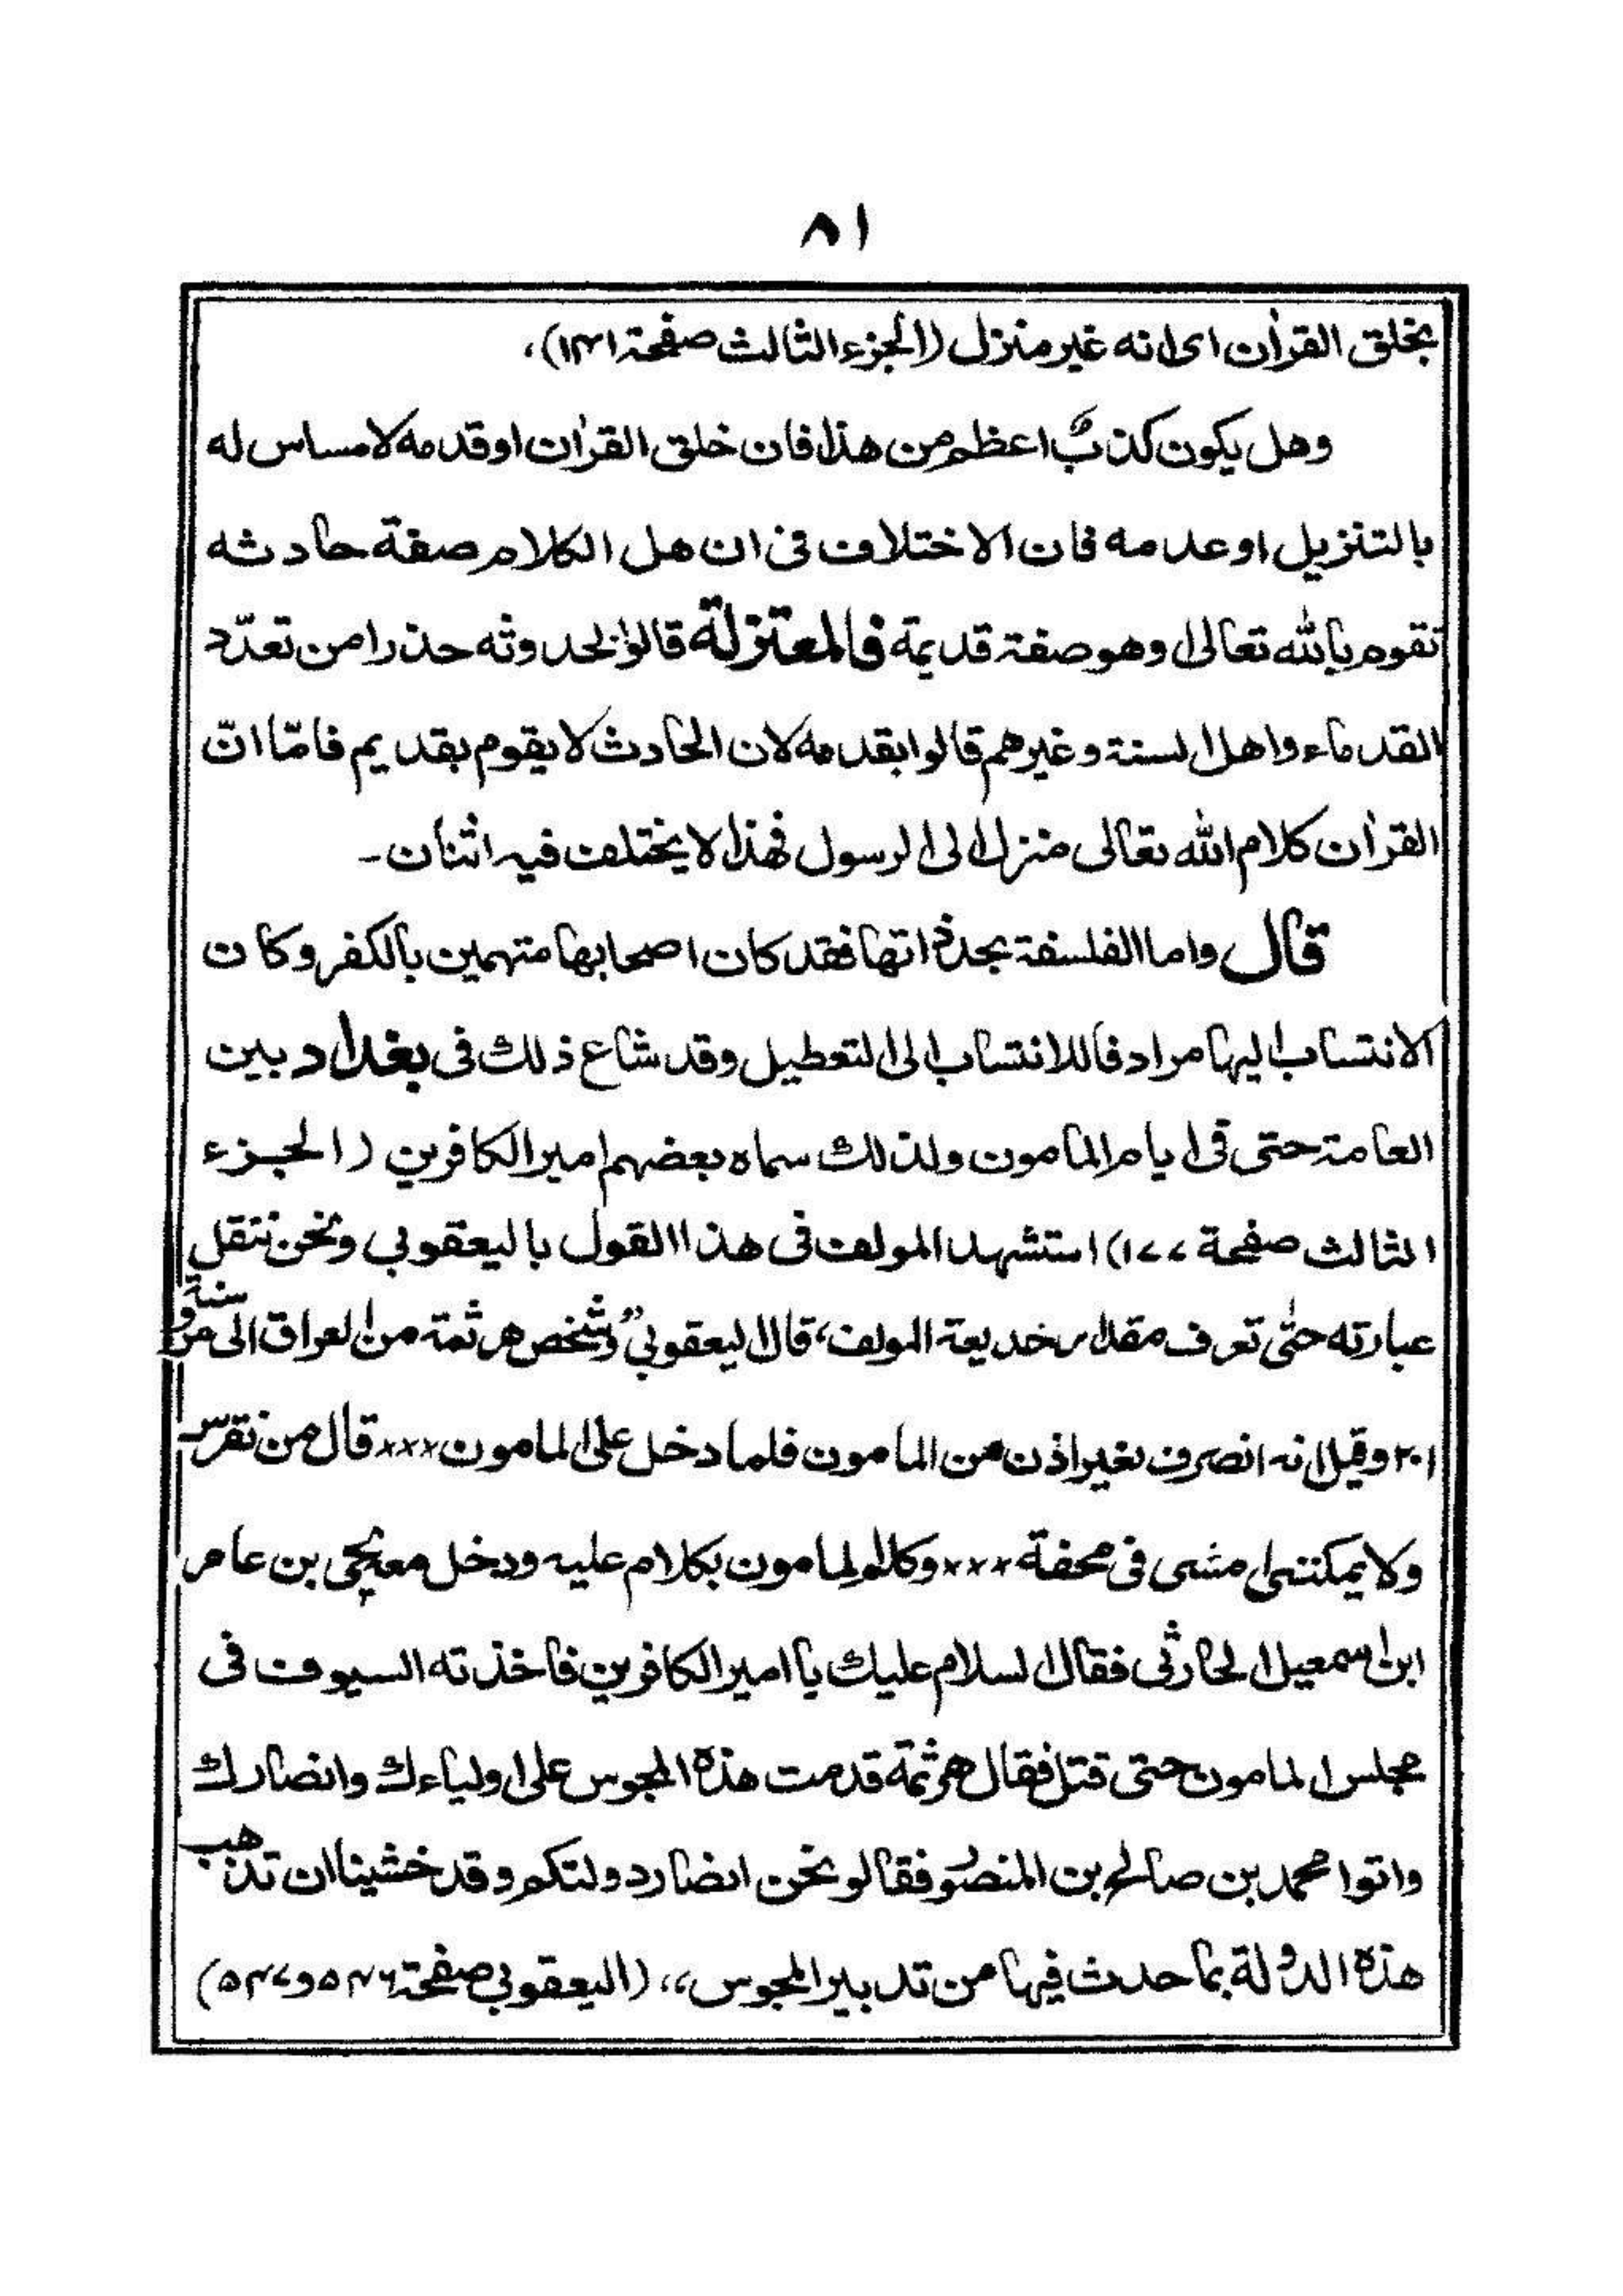 ٨١
بخلق القرأن اى انه غير منزل (الجزء الثالث صفحة ١٤١)،
وهل يكون كذبٌ اعظم من هذا فان خلق القرأن او قدمه لا مساس له
بالتنزيل او عدمه فان الاختلاف فى ان هل الكلام صفة حادثه
تقوم بالله تعالى او هو صفة قديمة فالمعتزلة قالوا بحدوثه حذرا من تعدّد
القدماء واهل السنة وغيرهم قالوا بقدمه لان الحادث لا يقوم بقديم فامّا انّ
القرأن كلام الله تعالى منزل الى الرسول فهذا لا يختلف فيه اثنان۔
قال واما الفلسفة بحد ذاتها فقد كان اصحابها متهمين بالكفر وكان
الانتساب اليها مرادفا للانتساب الى التعطيل وقد شاع ذلك فى بغداد بين
العامة حتى فى ايام المامون ولذلك سماه بعضهم امير الكافرين (الجزء
الثالث صفحة ١٧٧) استشهد المولف فى هذا القول باليعقوبى ونحن ننقل
عبارته حتى تعرف مقدار خديعة المولف، قال اليعقوبى "وشخص هرثمة من العراق الى مرو سنة
٢٠١ وقيل انه انصرف بغير اذن من المامون فلما دخل على المامون ××× قال من نقرس
ولا يمكننى امشى فى محفة ××× وكلم المامون بكلام عليه ودخل معه يحيى بن عامر
ابن اسمعيل الحارثى فقال السلام عليك يا امير الكافرين فاخذته السيوف فى
مجلس المامون حتى قتل فقال هرثمة قدمت هذه المجوس على اولياءك وانصارك
واتوا محمد بن صالح بن المنصور فقالو نحن انصار دولتكم وقد خشينا ان تذهب
هذه الدولة بما حدث فيها من تدبير المجوس،، (اليعقوبى صفحة ٥٤٦ و ٥٤٧)